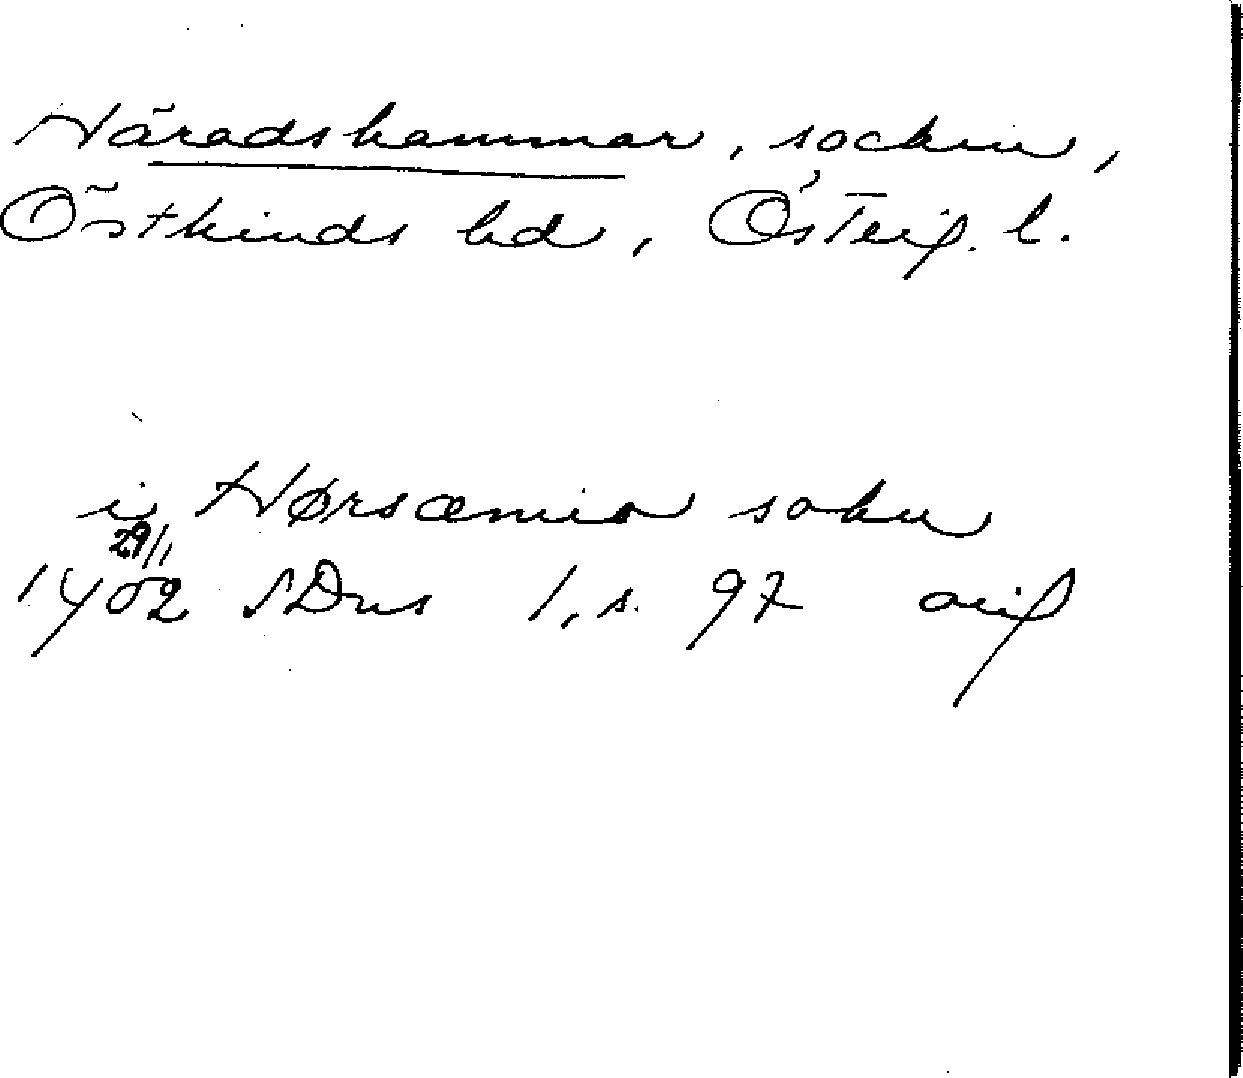 Häradshammar, socken,
Östkinds hd, Östergl.
i Hørsæmio sokn
29/1
1402 SDns 1, s. 97 orig